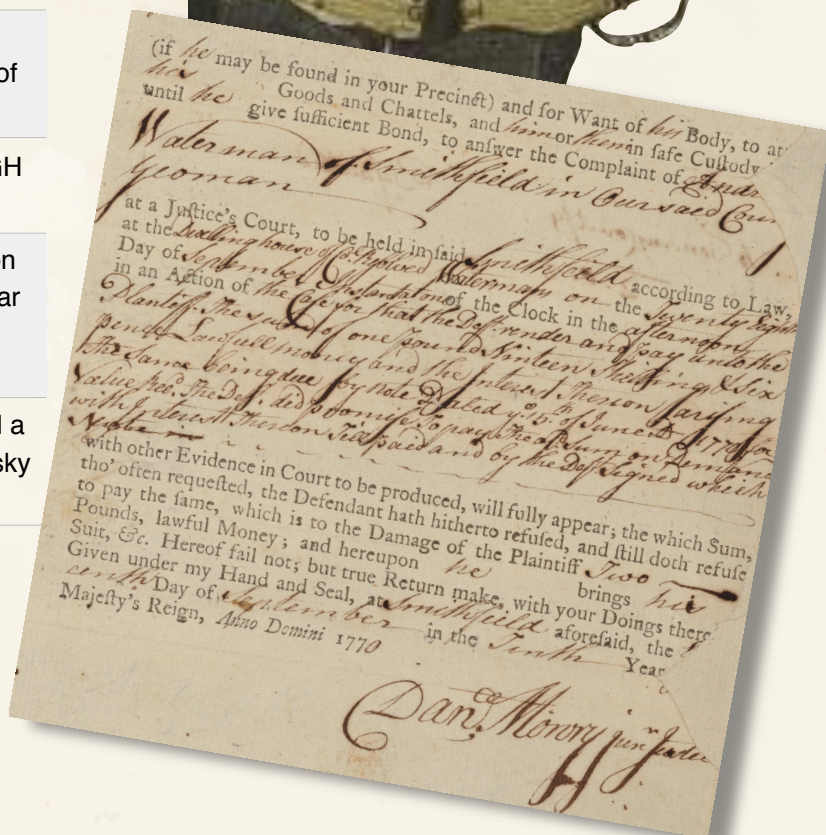 of
GH
on
ar
a
sky
(if he may be found in your Precinct) and for Want of his Body, to at
his Goods and Chattels, and him or them in ſafe Cuſtody
until he give ſufficient Bond, to anſwer the Complaint of Andr
Waterman of Smithfield in Our said Coun
yeoman
at a Juſtice's Court, to be held in ſaid Smithfield according to Law,
at the Dwelling house of Waterman on the Twenty Eighth
Day of September Instant at one of the Clock in the afternoon
in an Action of the Case for that the Deft. render and pay unto the
Plantiff. The sum of one pound Ninteen Shilling & Six
pence Lawfull money and the Interest Thereon
the same being due by note Dated ye. 15th of June AD 1770 for
Value Recd. The Deft. did promise To pay the sd. Sum on Demand
with Interest Thereon Till paid and by the Deft Signed which
Note
with other Evidence in Court to be produced, will fully appear; the which Sum,
tho' often requeſted, the Defendant hath hitherto refuſed, and ſtill doth refuſe
to pay the ſame, which is to the Damage of the Plaintiff Two
Pounds, lawful Money; and hereupon he brings his
Suit, &c. Hereof fail not; but true Return make, with your Doings there
Given under my Hand and Seal, at Smithfield aforeſaid, the
Day of September in the Tenth Year
Majeſty's Reign, Anno Domini 1770
Danl. Mowry junr